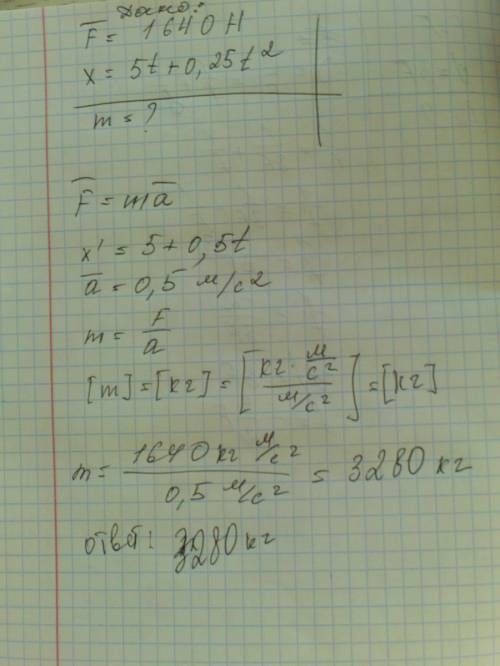 Дано:
F̅ = 1640 Н
x = 5t + 0,25t²
m = ?
F̅ = ma̅
x' = 5 + 0,5t
a̅ = 0,5 м/с²
m = F/a
[m] = [кг] = [(кг · м/с²)/(м/с²)] = [кг]
m = (1640 кг м/с²)/(0,5 м/с²) = 3280 кг
ответ: 3280 кг